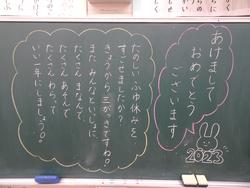 あけまして
おめでとう
ございます
2023
たのしいふゆ休みを
すごせましたか?
きょうから三がっきですね。
また、みんなといっしょに
たくさんまなんで
たくさんあそんで
たくさんわらって
いい一年にしましょう。